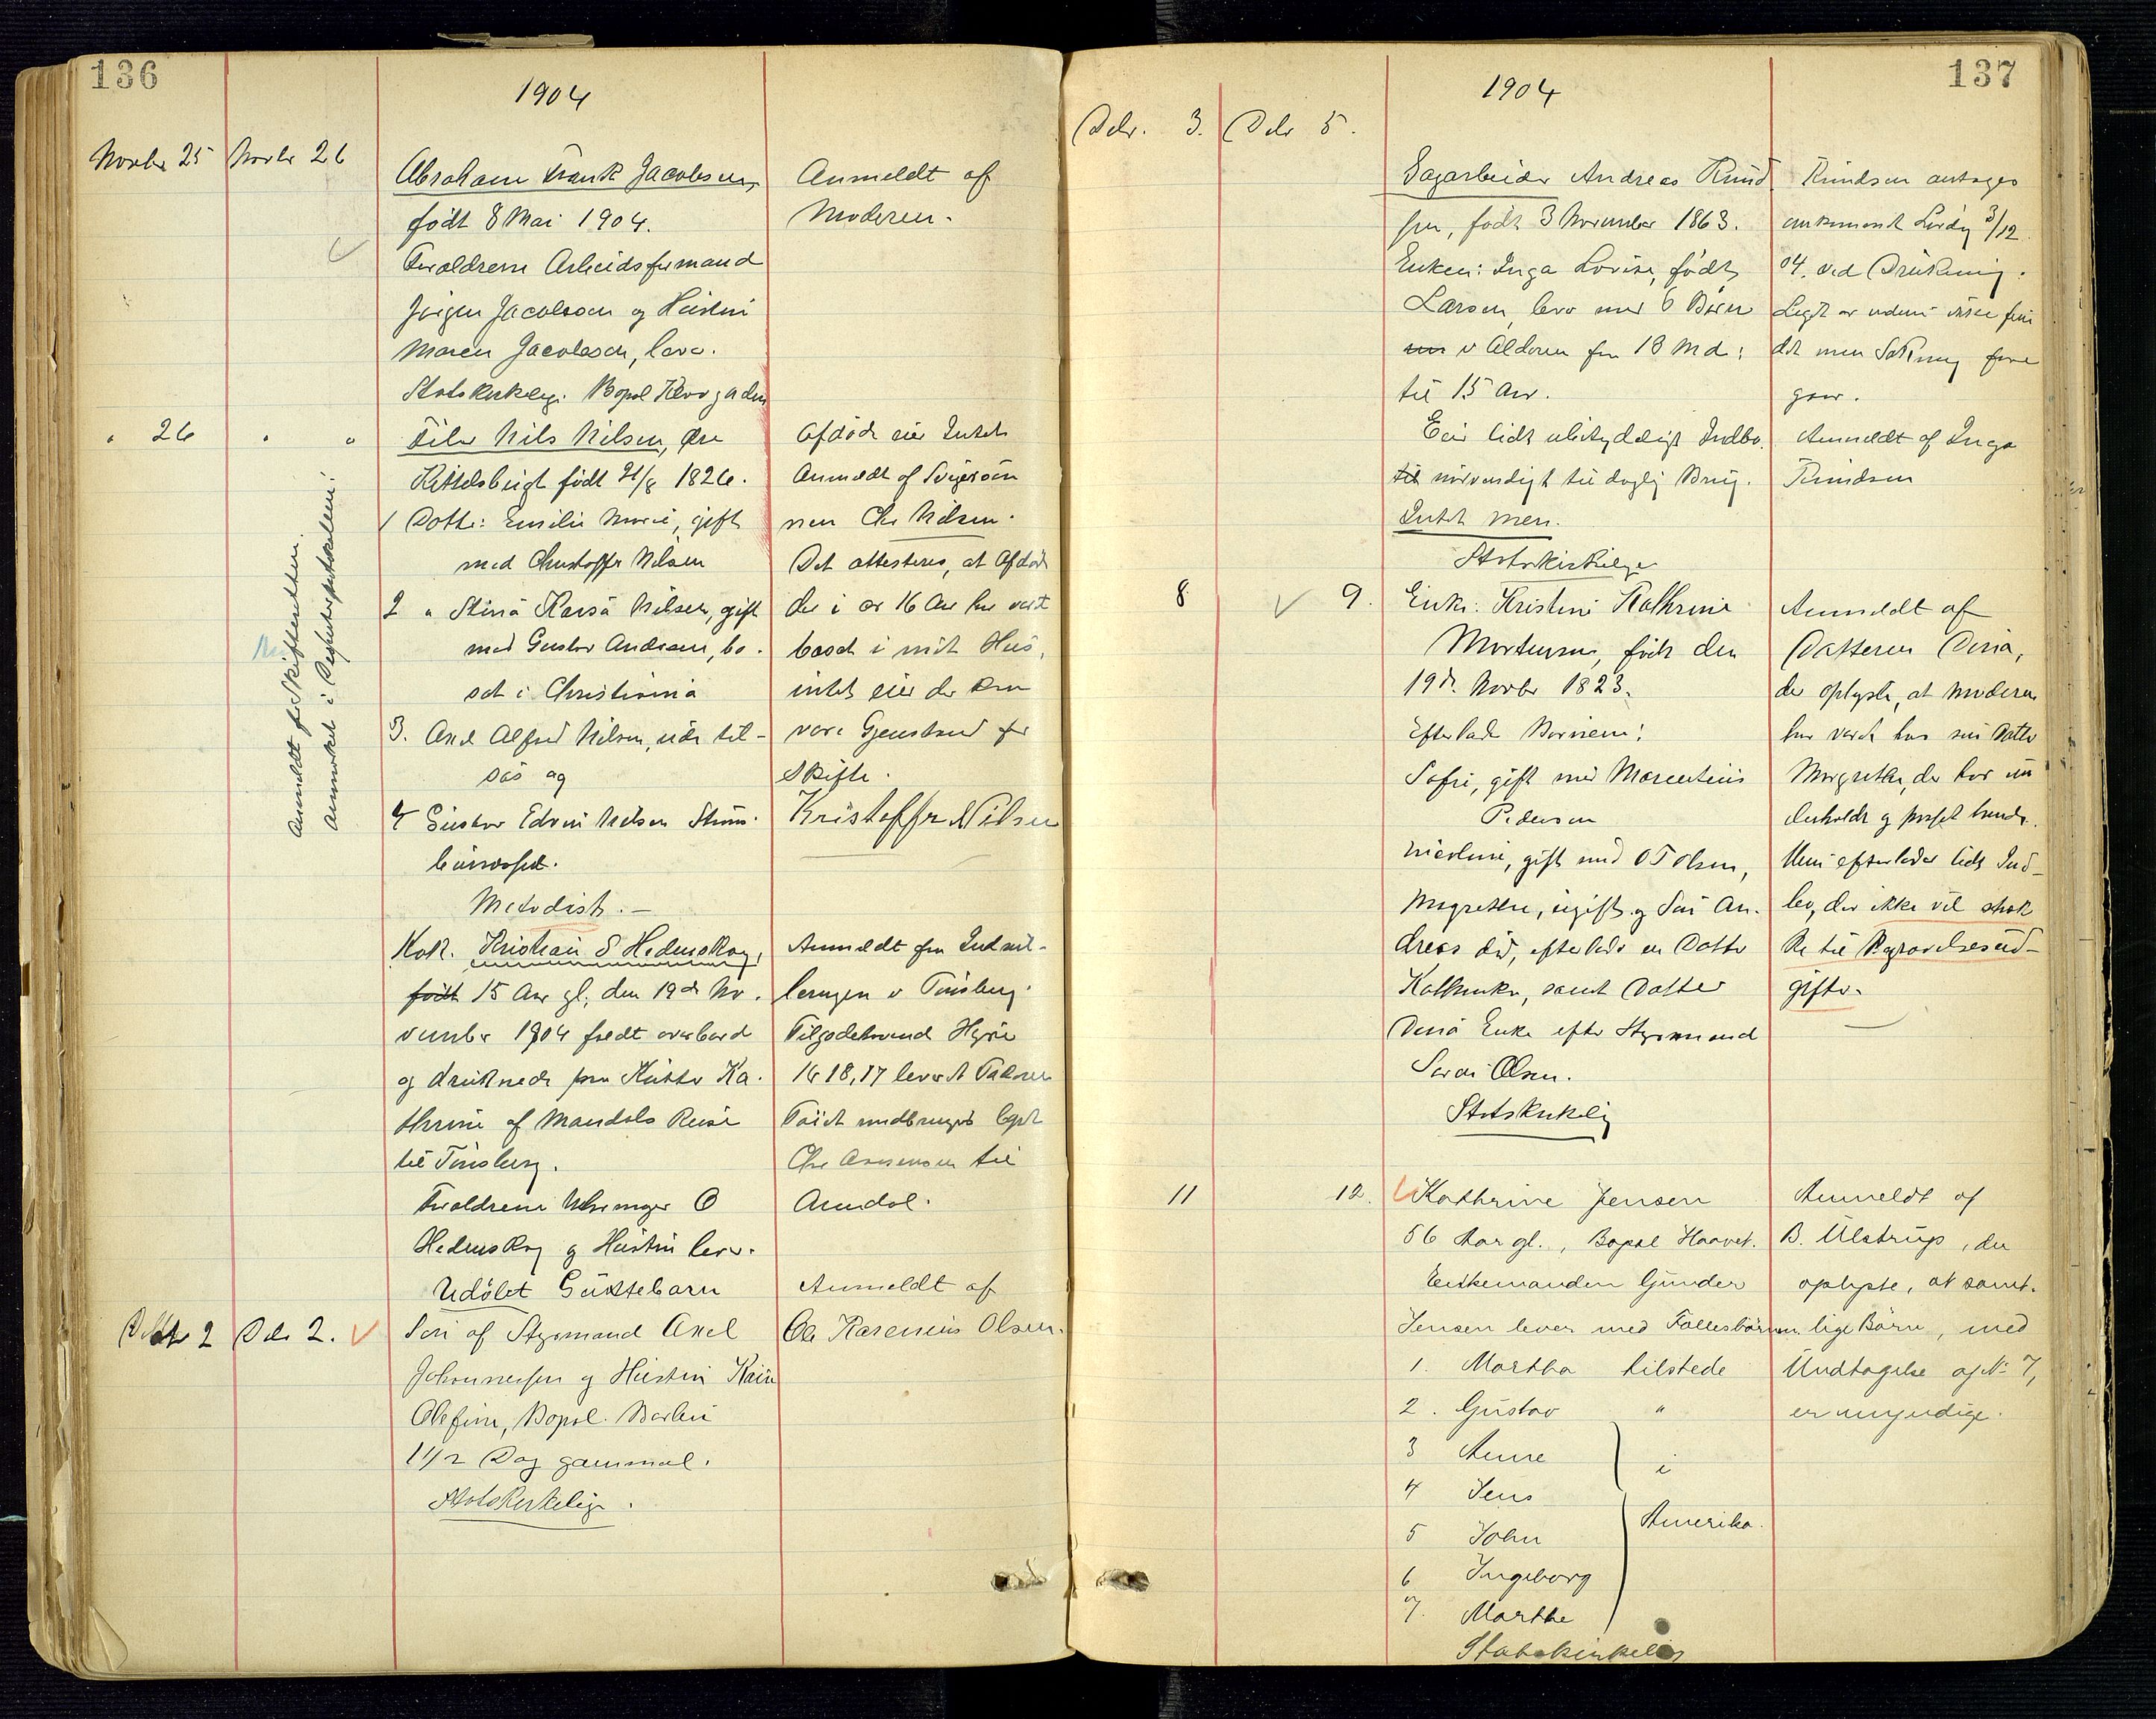 136
1904
Novbr 25 Novbr 26
Abraham Frank Jacobsen,
født 8 Mai 1904.
Forældrene Arbeidsformand
Jørgen Jacobsen og Hustru
Maren Jacobsen, lever.
Statskirkelig. Bopæl
Anmeldt af
Moderen.
" 26 " "
Nils Nilsen,
født 21/8 1826.
1 Datter: Emilie Marie, gift
med Christoffer Nilsen
2 " Nilsen, gift
med Gustav Andersen, bo-
sat i Christiania
3. Axel Alfred Nilsen, til-
søs og
4 Gustav Edvin Nilsen
Metodist. –
Afdøde eier Intet
Anmeldt af Svigersøn
nen Chr Nilsen.
Det attesteres, at Afdøde
der i ca 16 Aar har været
bosat i mit Hus,
intet eier der kan
være Gjenstand for
Skifte.
Kristoffer Nilsen
Anmeldt for Skifteretten.
Anmerket i Registerprotokollen.
Kok. Kristian S Hedenskog,
født 15 Aar gl, den 19de No-
vember 1904 faldt overbord
og druknede fra Kutter Ka-
thrine af Mandals Reise
til Tønsberg.
Forældrene O
Hedenskog og Hustru lever.
Anmeldt fra Indrul-
leringen i Tønsberg.
Tilgodehavende Hyre
Kr 18,17 leveret
Tøiet medbringes
til
Arendal.
Decbr 2 Dcbr 2.
Udøbt Guttebarn
Søn af Styrmand Axel
Johannessen og Hustru
Olefine, Bopæl.
1 1/2 Dag gammel.
Statskirkelig.
Anmeldt af
Ole Rasmus Olsen.
137
1904
Dcbr. 3. Dcbr 5.
Sagarbeider Andreas Knud
sen, født 3 November 1863.
Enken: Inga Lovise, født
Larsen, lever med 6 Børn
i Alderen fra 18 Md:
til 15 Aar.
Eier lidt ubetydeligt Indbo.
til nødvendigt til daglig Brug.
Intet mere.
Statskirkelige
Knudsen antages
omkommet Lørdag 3/12
04. ved Drukning.
Liget er endnu ikke fun
det men Søkning fore
gaar.
Anmeldt af Inga
Knudsen
8. 9.
Enke: Kristine Kathrine
Mortensen, født den
19de Novbr 1823.
Efterlader Børnene:
Sofie, gift med Marentius
Pedersen
Nicoline, gift med O T Olsen,
Magrethe, ugift og Søn An-
dreas død, efterlader en Datter
samt Datter
Dina Enke efter Styrmand
Olsen.
Statskirkelig
Anmeldt af
Datteren Dina,
der oplyste, at Moderen
har været hos sin Datter
Margrethe, der har un
derholdt og passet hende.
Hun efterlader lidt Ind-
bo, der ikke vil stræk
ke til Begravelsesud-
gifter.
11 12.
Kathrine Jensen
56 Aar gl., Bopæl Haavet.
Enkemanden Gunder
Jensen lever med Fællesbørnene
1. Martha tilstede
2. Gustav "
3 Anne
4 Jens
5 John
6 Ingeborg
7. Marthe
i
Amerika.
Statskirkelig
Anmeldt af
B. Ulstrup, der
oplyste, at samt-
lige Børn, med
Undtagelse af No 7,
er myndige.